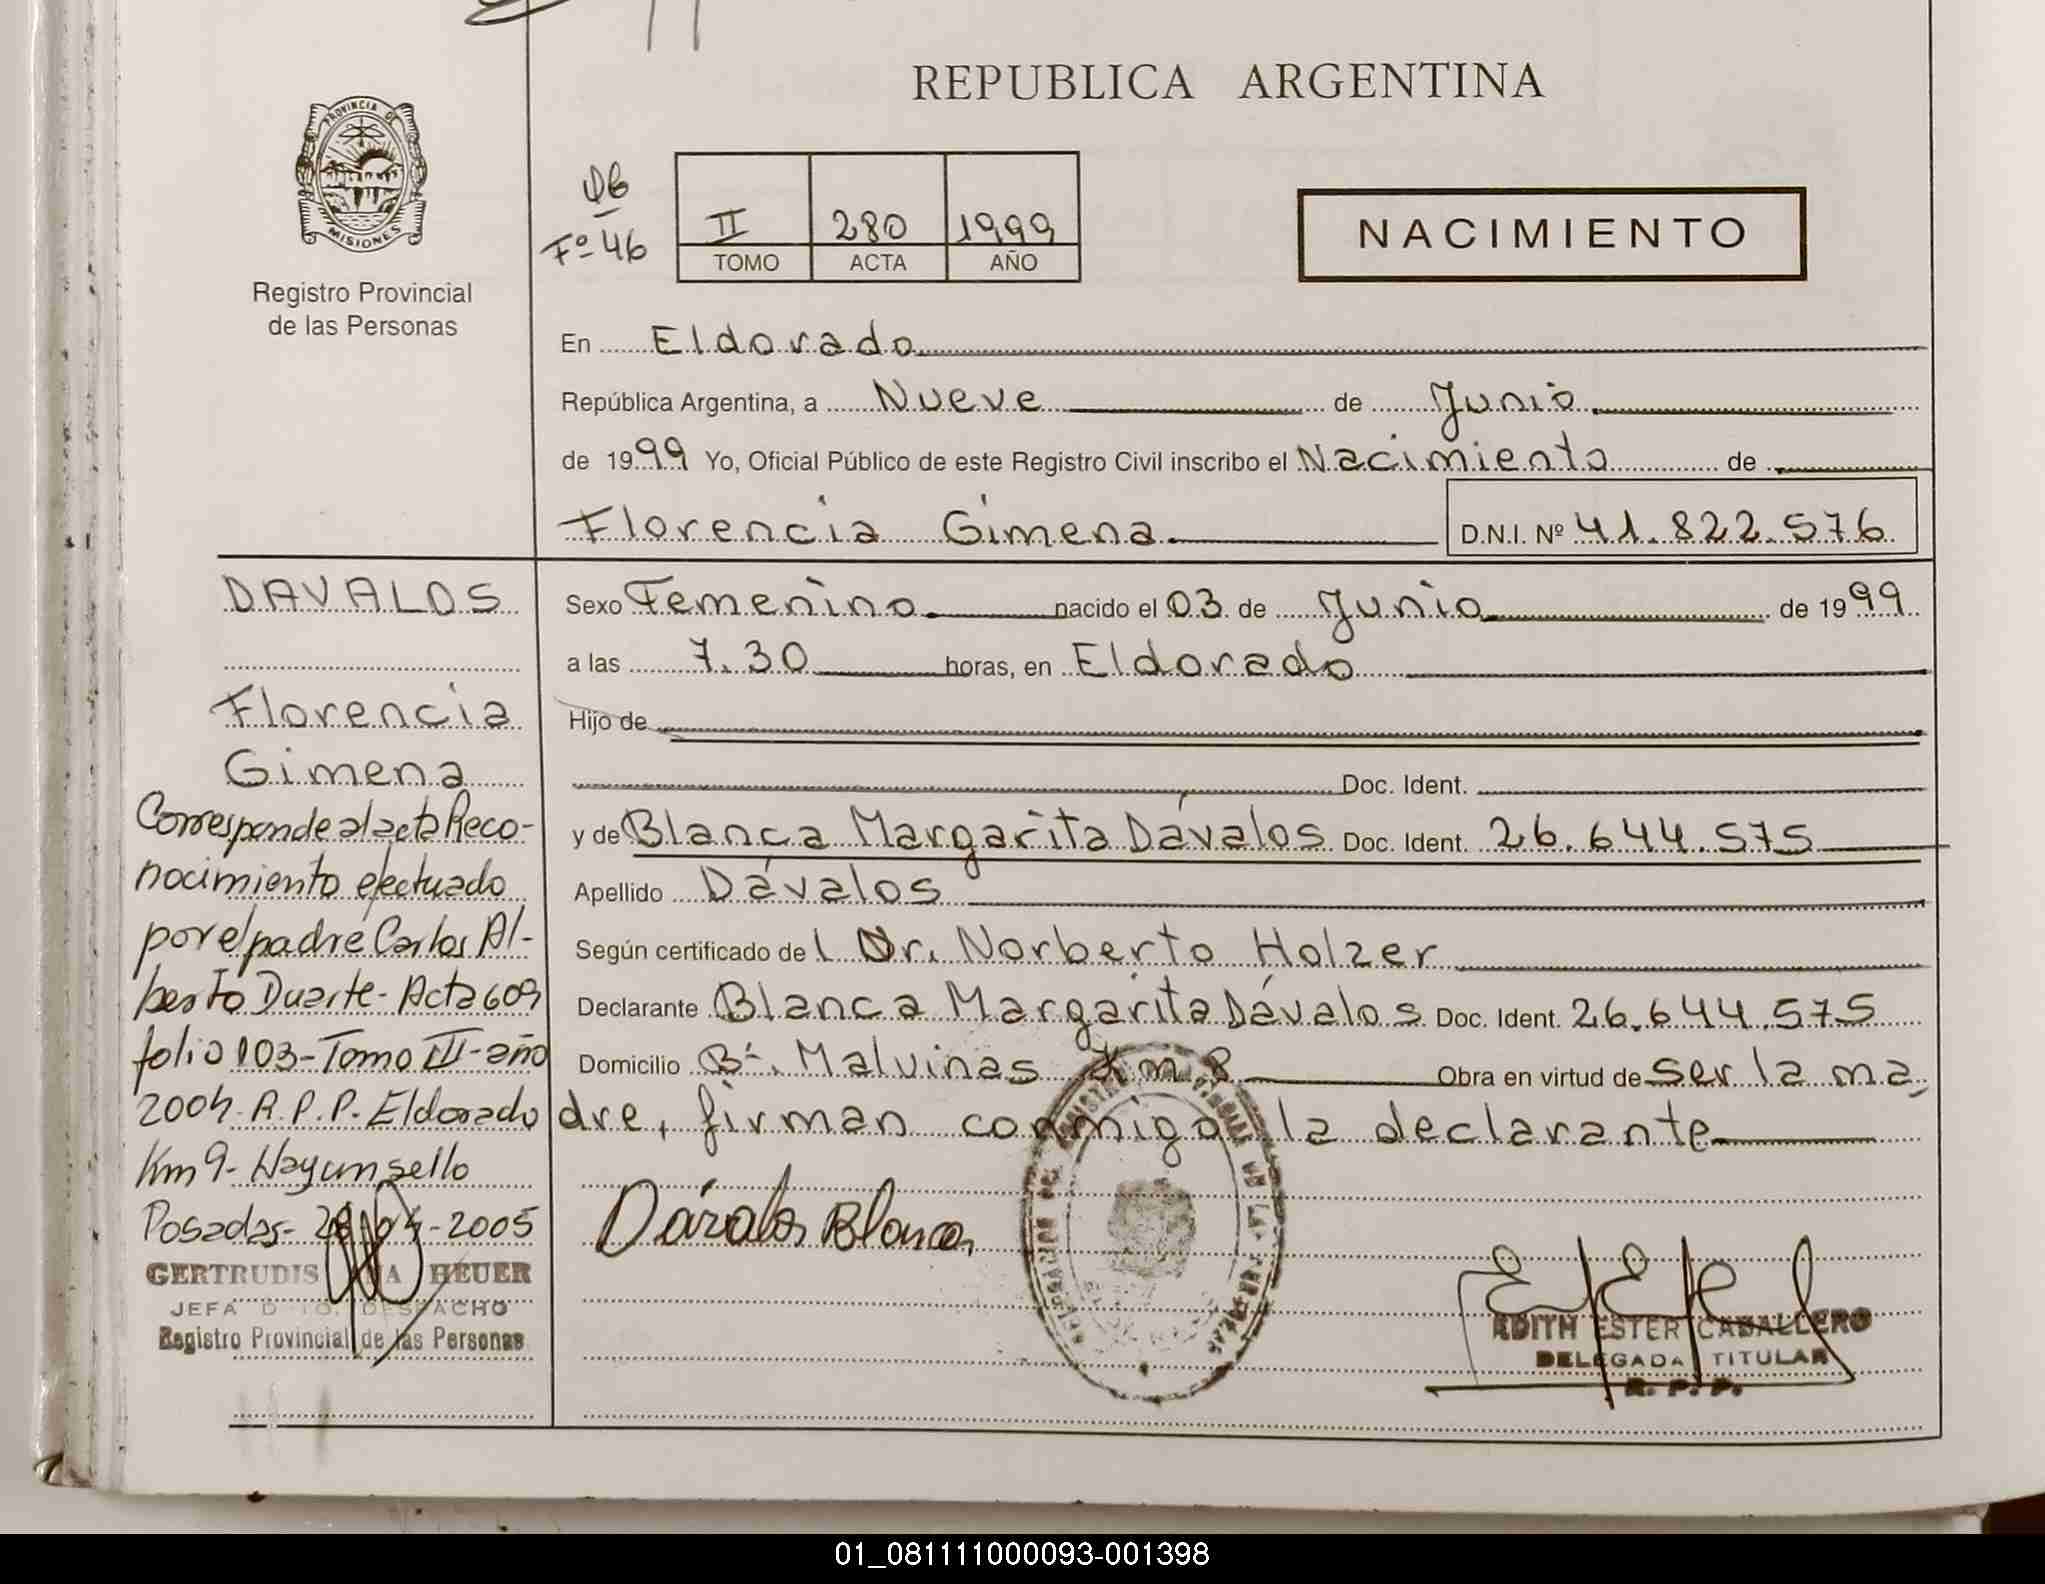 REPUBLICA ARGENTINA
PROVINCIA DE
MISIONES
Registro Provincial
de las Personas
Fº 46
II 280 1999
TOMO ACTA AÑO
NACIMIENTO
En Eldorado
República Argentina, a Nueve de Junio
de 1999 Yo, Oficial Público de este Registro Civil inscribo el Nacimiento de
Florencia Gimena D.N.I. Nº 41.822.576
DAVALOS
Florencia
Gimena
Corresponde al acta Reco-
nocimiento efectuado
por el padre Carlos Al-
berto Duarte - Acta 609
folio 103 - Tomo III - año
2004. R.P.P. Eldorado
Km 9 - Hay un sello
Posadas - 28 04 - 2005
GERTRUDIS HEUER
JEFA DESPACHO
Registro Provincial de las Personas
Sexo Femenino. nacido el 03 de Junio de 1999
a las 7.30 horas, en Eldorado
Hijo de
Doc. Ident.
y de Blanca Margarita Dávalos Doc. Ident. 26.644.575
Apellido Dávalos
Según certificado de l Dr. Norberto Holzer
Declarante Blanca Margarita Dávalos Doc. Ident. 26.644.575
Domicilio Bº. Malvinas Km 8 Obra en virtud de ser la ma
dre, firman conmigo la declarante
Dávalos Blanca
EDITH ESTER CABALLERO
DELEGADA TITULAR
R. P. P.
01_081111000093-001398